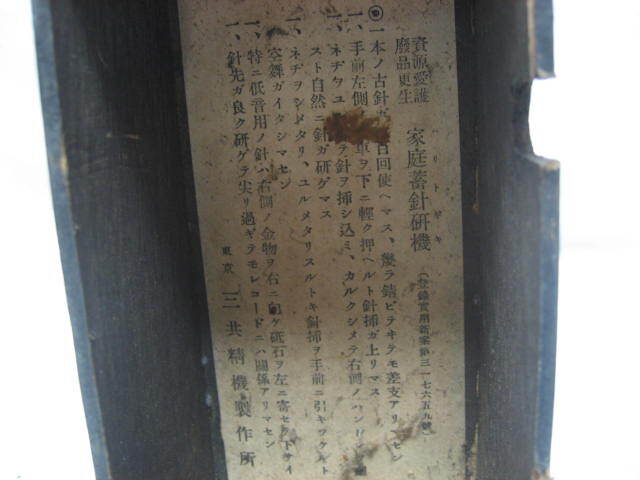 資源愛護
廢品更生
家庭蓄針研機
ハリトギキ
(登錄實用新案第三一七六五九號)
一本ノ古針ガ 百回使ヘマス、幾ラ錆ビテキテモ差支アリマセン
一、手前左側ノ 車ヲ下ニ輕ク押ヘルト針挿ガ上リマス
一、ネヂヲユ ラ針ヲ挿シ込ミ、カルクシメテ右側ノハンドル
スト自然ニ針ガ研ゲマス
一、ネヂヲシメタリ、ユルメタリスルトキ針挿ヲ手前ニ引キツケルト
空舞ガイタシマセン
一、特ニ低音用ノ針ハ右側ノ金物ヲ右ニ向ケ砥石ヲ左ニ寄セテ下サイ
一、針先ガ良ク研ゲテ尖リ過ギテモレコードニハ關係アリマセン
東京 三共精機製作所